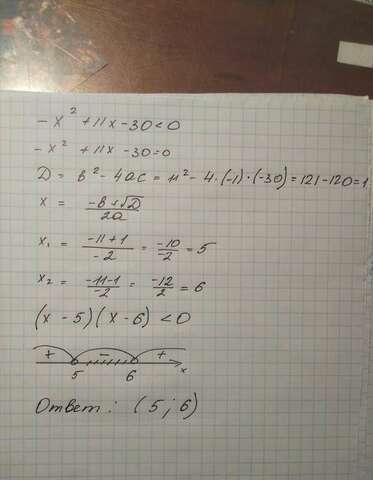 -x² + 11x - 30 < 0
-x² + 11x - 30 = 0
D = b² - 4ac = 11² - 4·(-1)·(-30) = 121 - 120 = 1
x = (-b ± √D)/2a
x₁ = (-11 + 1)/(-2) = (-10)/(-2) = 5
x₂ = (-11 - 1)/(-2) = (-12)/2 = 6
(x - 5)(x - 6) < 0
+ - +
5 6 x
Ответ: (5; 6)